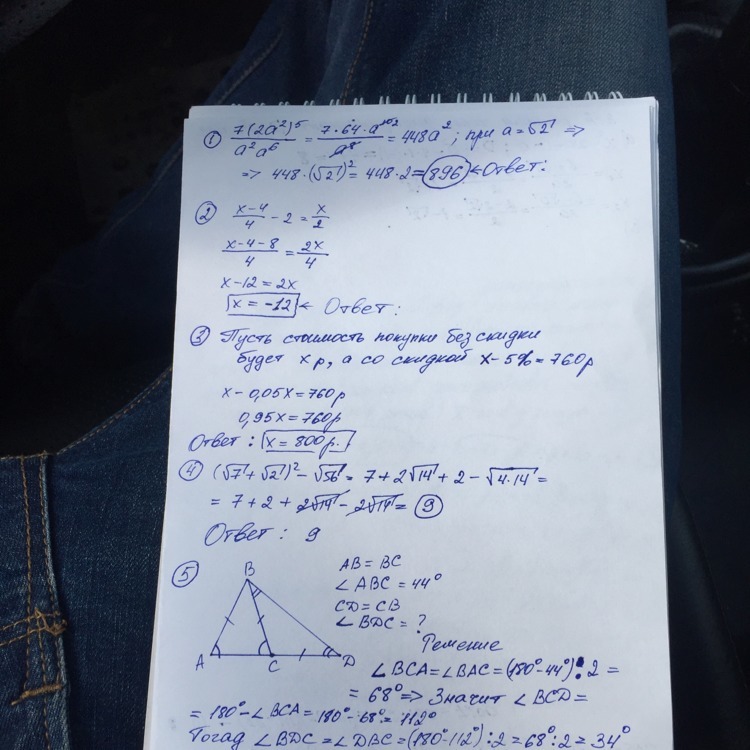 ① 7(2a²)⁵/a²a⁶ = 7·64·a¹⁰ ²/a⁸ = 448a²; при a=√2 ⇒
⇒ 448·(√2)² = 448·2 = 896 ← Ответ:
② x-4/4 - 2 = x/2
x-4-8/4 = 2x/4
x-12 = 2x
x = -12 ← Ответ:
③ Пусть стоимость покупки без скидки
будет x р, а со скидкой x-5% = 760р
x - 0,05x = 760р
0,95x = 760р
Ответ: x = 800р.
④ (√7 + √2)² - √56 = 7 + 2√14 + 2 - √4·14 =
= 7 + 2 + 2√14 - 2√14 = 9
Ответ: 9
⑤ B
A C D
AB = BC
∠ABC = 44°
CD = CB
∠BDC = ?
Решение
∠BCA = ∠BAC = (180°-44°):2 =
= 68° ⇒ Значит ∠BCD =
= 180° - ∠BCA = 180° - 68° = 112°
Тогад ∠BDC = ∠DBC = (180°-112°):2 = 68°:2 = 34°